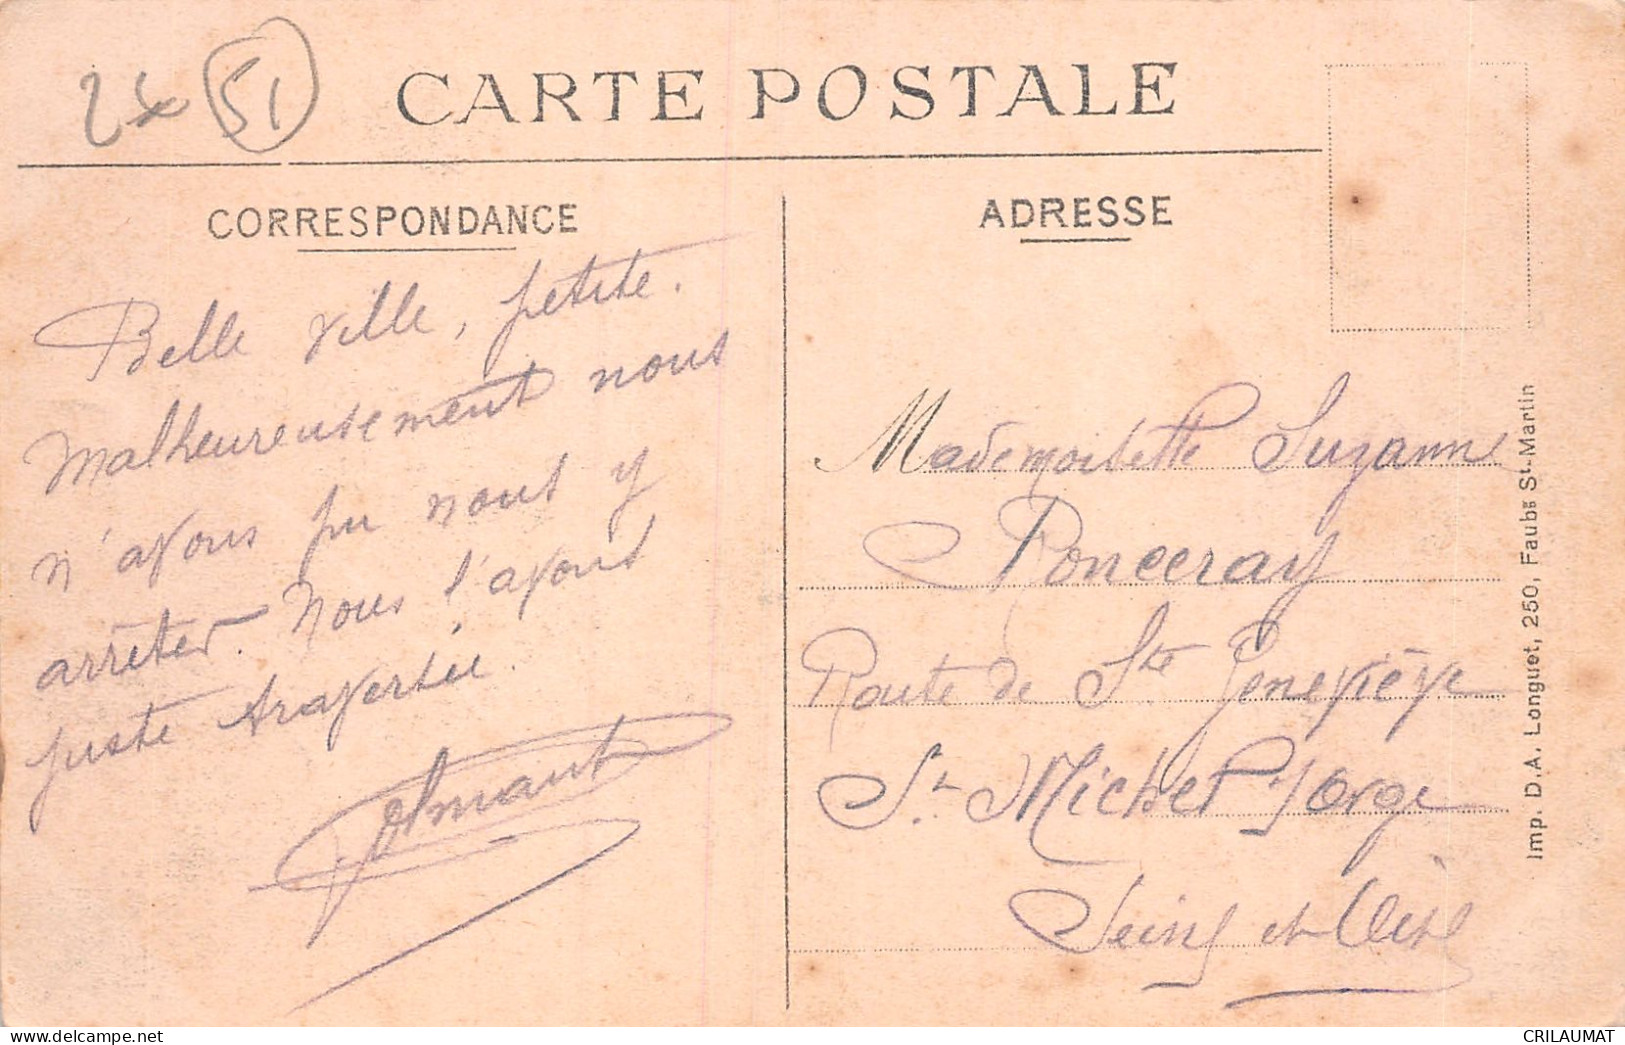 51
CARTE POSTALE
CORRESPONDANCE
ADRESSE
Belle ville, petite.
Malheureusement nous
n'avons pu nous y
arrêter. Nous l'avons
juste traversée.
Mademoiselle Suzanne
Ronceray
Route de Ste Geneviève
St Michel s/ Orge
Seine et Oise
Imp. D.A. Longuet, 250, Faubg St-Martin
CRILAUMAT